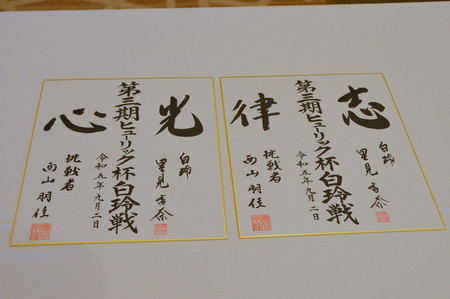 光
心
第三期ヒューリック杯白玲戦
令和五年九月二日
白玲
里見香奈
挑戦者
西山朋佳
志
律
第三期ヒューリック杯白玲戦
令和五年九月二日
白玲
里見香奈
挑戦者
西山朋佳